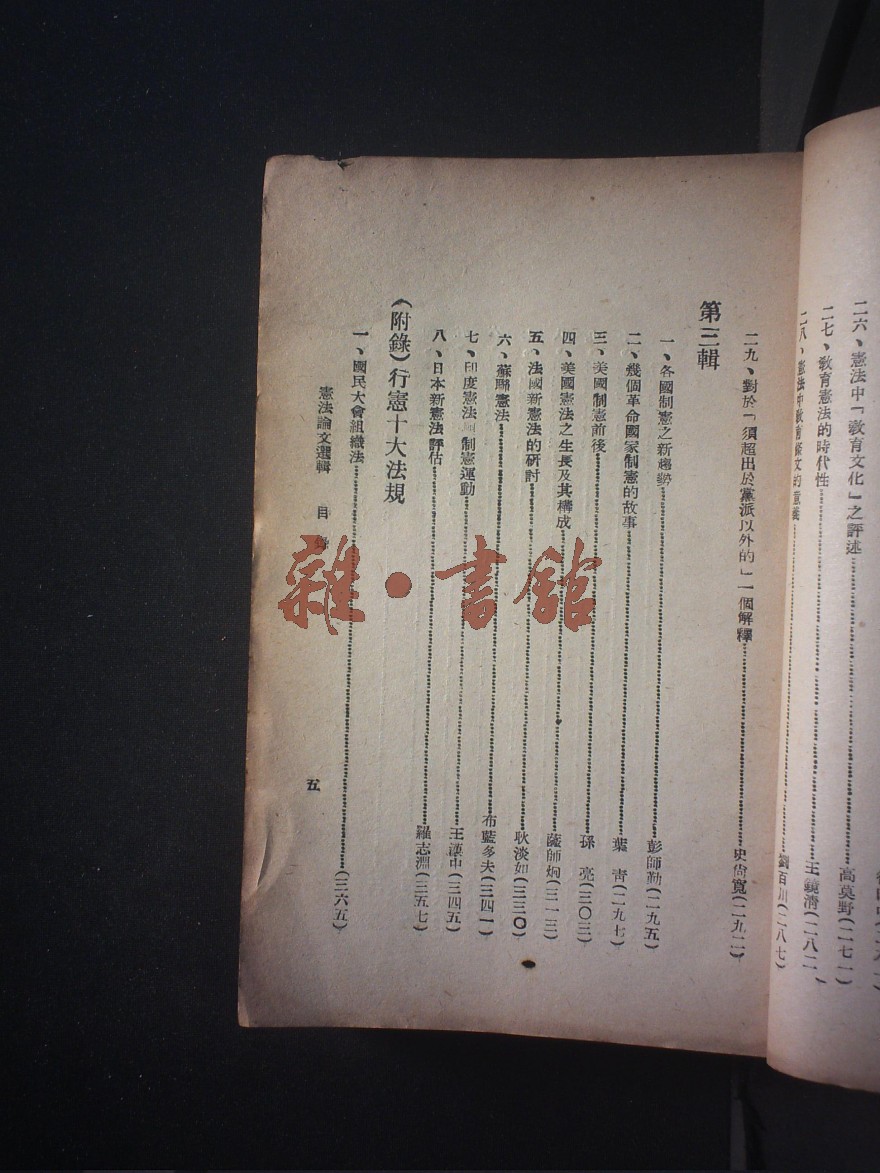 二六、憲法中「教育文化」之評述……高莫野(二七一)
二七、教育憲法的時代性……王鏡清(二八二、
二八、憲法中教育條文的意義……劉百川(二八七)
二九、對於「須超出於黨派以外的」一個解釋……史尙寬(二九二)
第三輯
一、各國制憲之新趨勢……彭師勤(二九五)
二、幾個革命國家制憲的故事……葉 靑(二九七)
三、美國制憲前後……孫 亮(三〇三)
四、美國憲法之生長及其構成……薩師炯(三一三)
五、法國新憲法的研討……耿淡如(三三〇)
六、蘇聯憲法……布藍多夫(三四一)
七、印度憲法與制憲運動……王漢中(三四五)
八、日本新憲法評估……羅志淵(三五七)
(附錄)行憲十大法規
一、國民大會組織法……(三六五)
憲法論文選輯 目錄
五
雜·書館